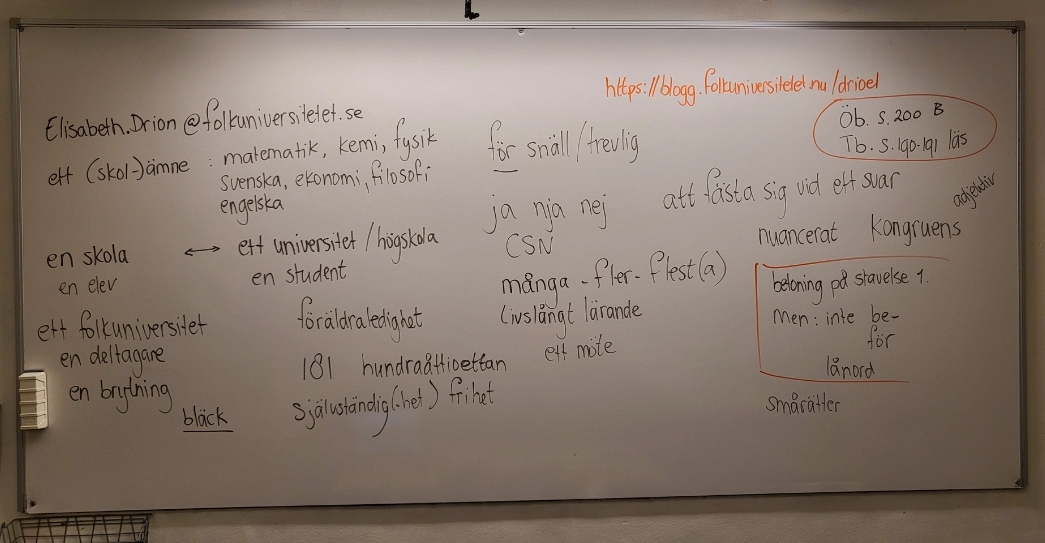 https://blogg.folkuniversitetet.nu/drioel
Elisabeth.Drion@folkuniversitetet.se
ett (skol-)ämne : matematik, kemi, fysik
svenska, ekonomi, filosofi
engelska
en skola ↔ ett universitet / högskola
en elev
en student
ett folkuniversitet
en deltagare
en brytning
bläck
föräldraledighet
181 hundraåttioettan
självständig(-het) frihet
för snäll/trevlig
ja nja nej
CSN
många - fler - flest(a)
Livslångt lärande
ett möte
Öb. s. 200 B
Tb. s. 190-191 läs
att fästa sig vid ett svar
adjektiv
nuancerat kongruens
betoning på stavelse 1.
Men: inte be-
för
lånord
smårätter